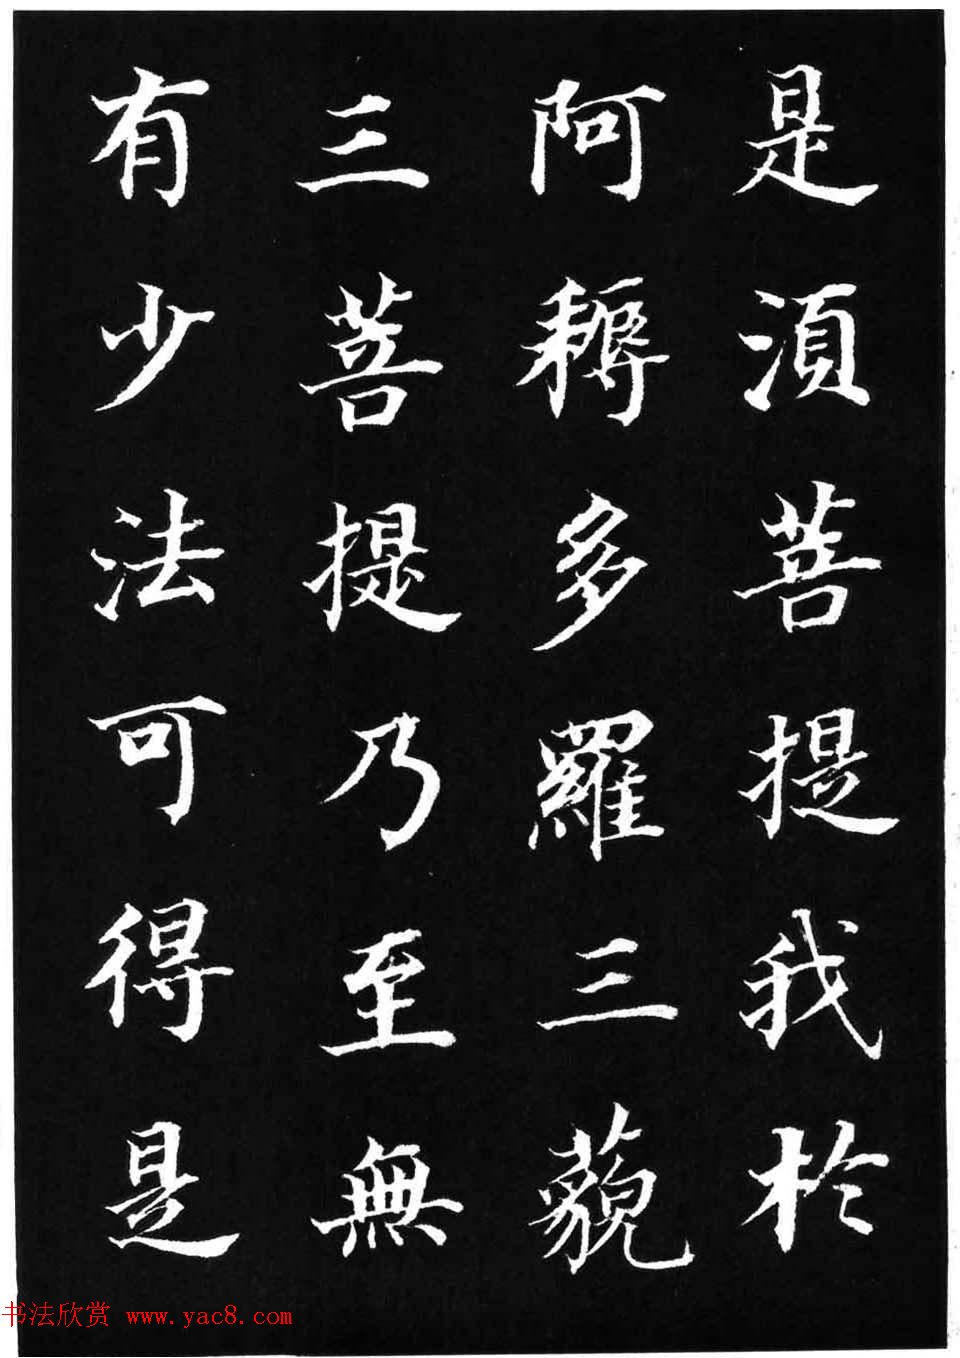 是須菩提我於
阿耨多羅三藐
三菩提乃至無
有少法可得是
书法欣赏 www.yac8.com